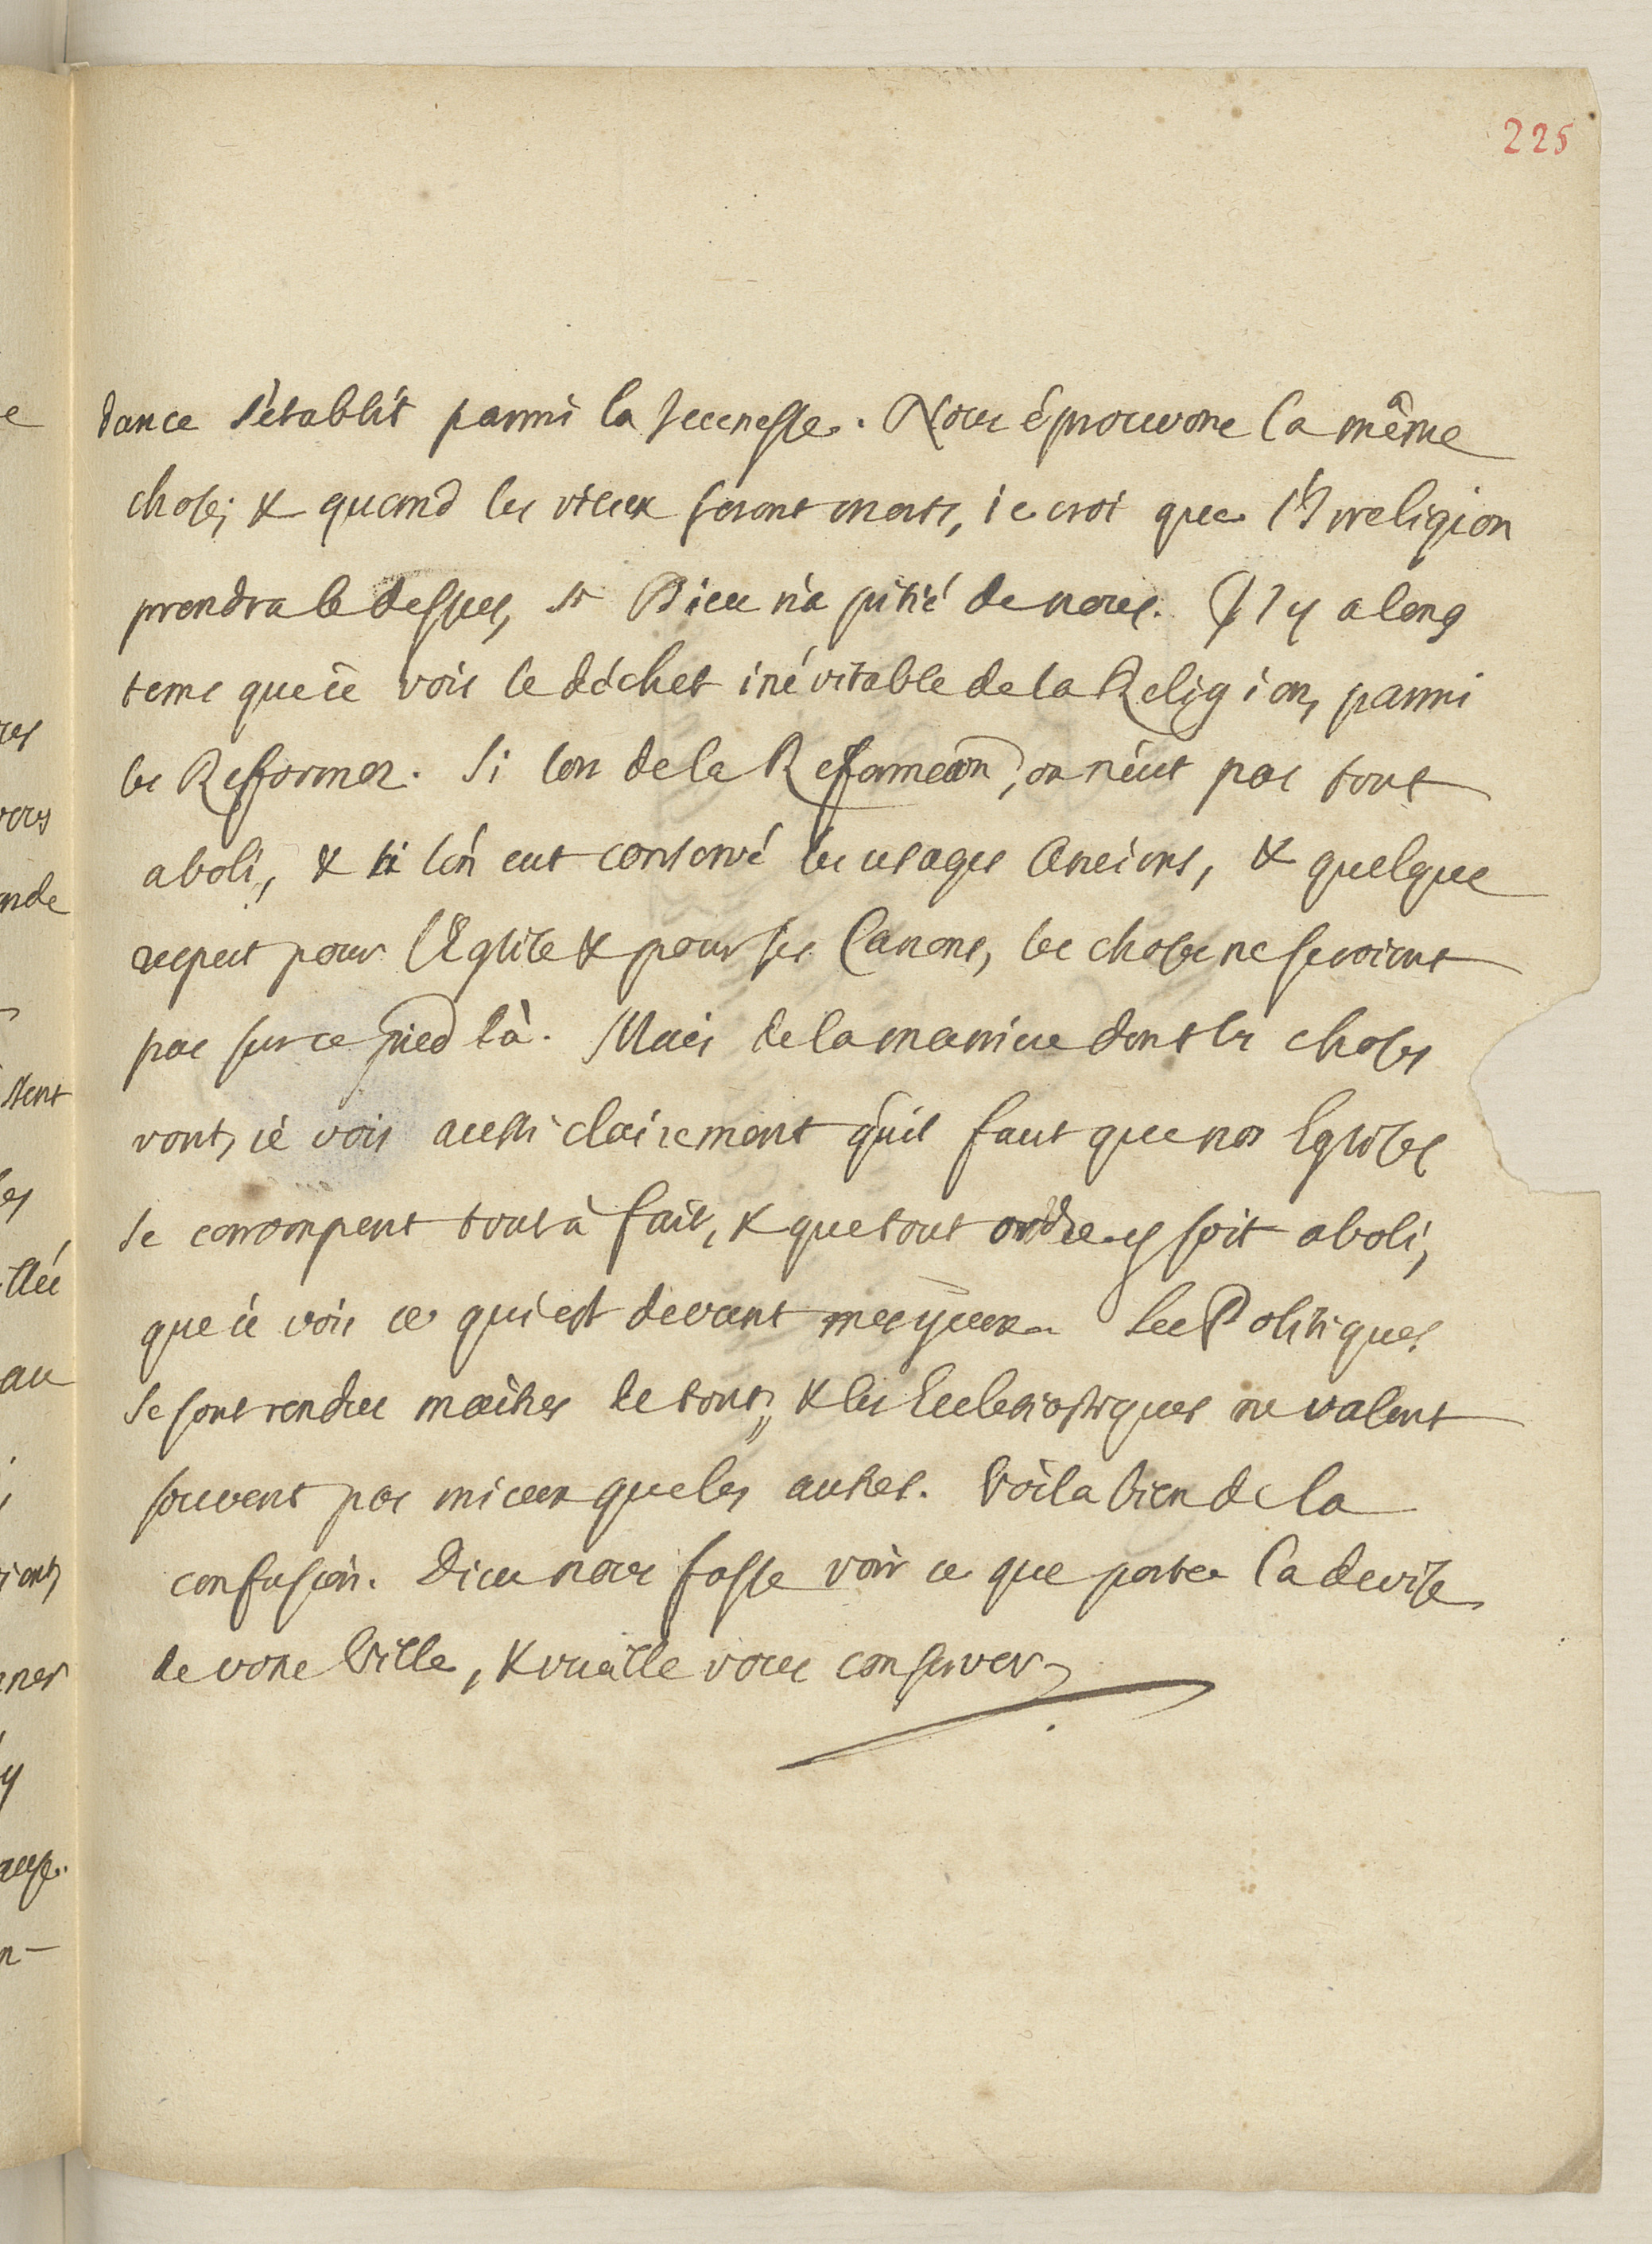 225
dance s'établit parmi la Jeunesse. Nous éprouvons la même
chose; & quand les vieux seront morts, ie croi que l'Irreligion
prendra le dessus, si Dieu n'a pitié de nous. Il y a long
tems que ie vois le déchet inévitable de la Religion, parmi
les Reformez. Si lon de la Reformaon, on n'eut pas tout
aboli, & si l'on eut conservé les usages Anciens, & quelque
respect pour l'Eglise & pour ses Canons, les choses ne seroient
pas sur ce pied là. Mais de la maniere dont les choses
vont, ie vois aussi clairement qu'il faut que nos Eglises
se corrompent tout à fait, & que tout ordre y soit aboli,
que ie vois ce qui est devant mes yeux. Les Politiques
se sont rendus maitres de tout, & les Ecclesiastiques ne valent
souvent pas mieux que les autres. Voila bien de la
confusion. Dieu nous fasse voir ce que porte la devise
de votre Ville, & vueille vous conserver